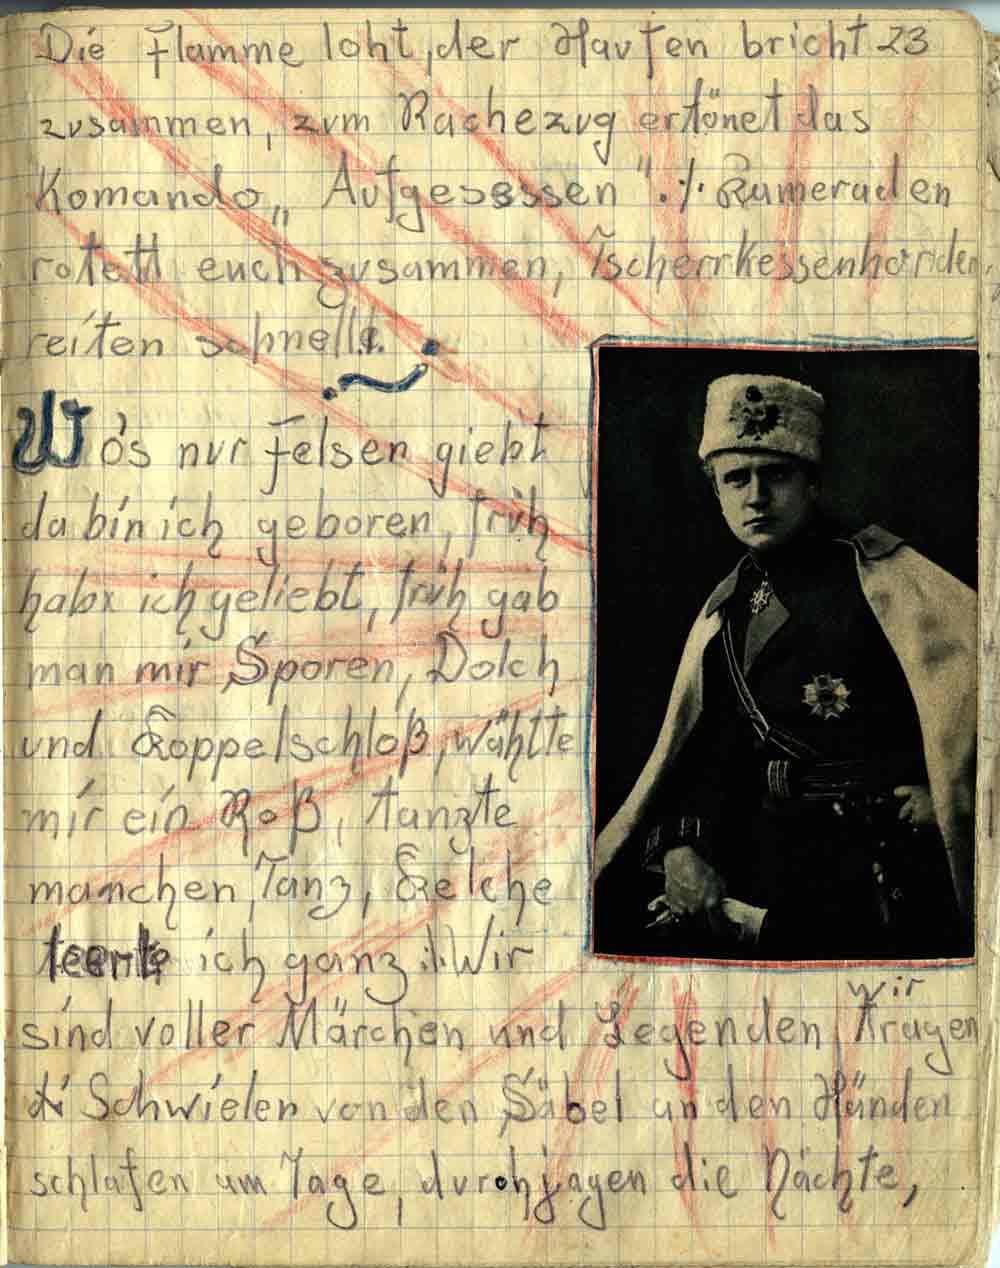 Die Flamme loht, der Haufen bricht 23
zusammen, zum Rachezug ertönet das
Komando „Aufgesessen". ./. Kameraden
rotett euch zusammen, Tscherrkessenhorden
reiten schnell:/.
Wo's nur Felsen giebt
da bin ich geboren, früh
habe ich geliebt, früh gab
man mir Sporen, Dolch
und Koppelschloß, wählte
mir ein Roß, tanzte
manchen Tanz, Kelche
leerte ich ganz :/: Wir
sind voller Märchen und Legenden, wir tragen
Schwielen von den Säbel an den Händen
schlafen am Tage, durchjagen die Nächte,